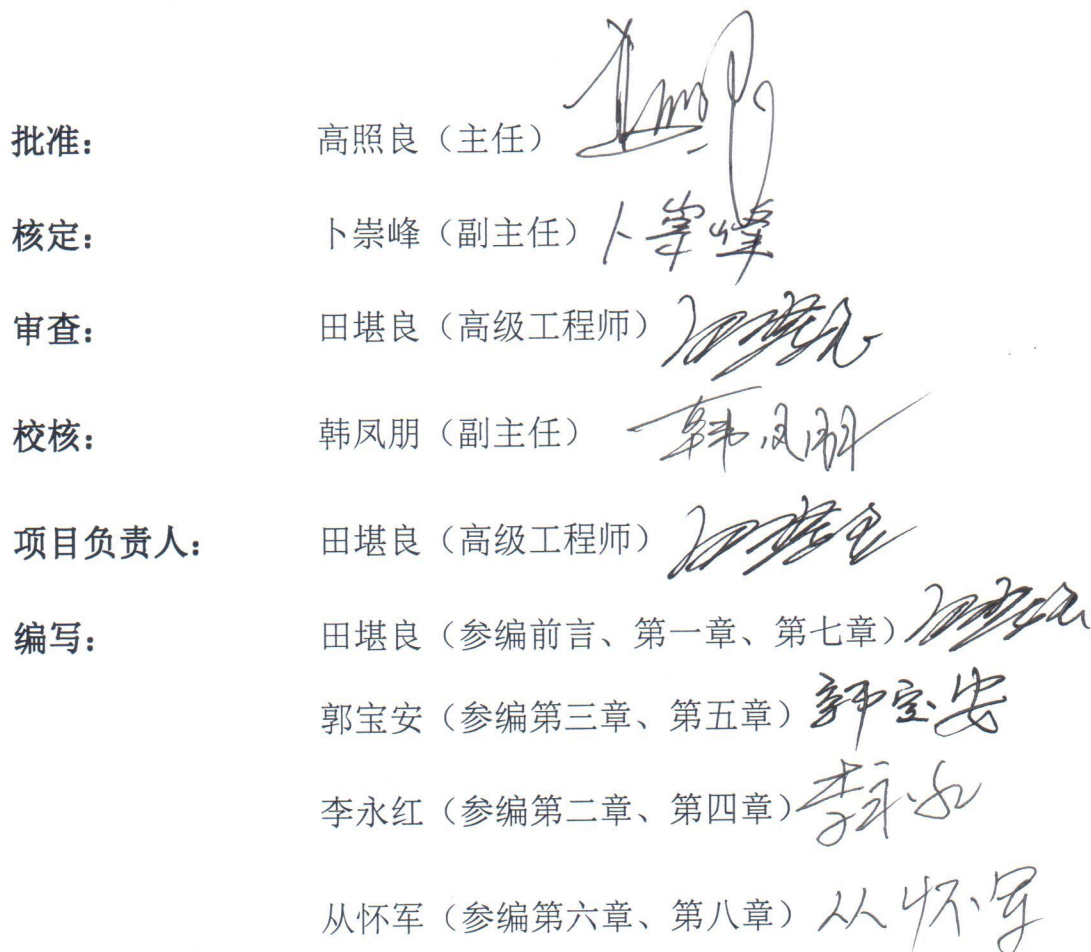 批准： 高照良（主任）
核定： 卜崇峰（副主任） 卜崇峰
审查： 田堪良（高级工程师） 田堪良
校核： 韩凤朋（副主任） 韩凤朋
项目负责人： 田堪良（高级工程师） 田堪良
编写： 田堪良（参编前言、第一章、第七章） 田堪良
郭宝安（参编第三章、第五章） 郭宝安
李永红（参编第二章、第四章） 李永红
从怀军（参编第六章、第八章） 从怀军